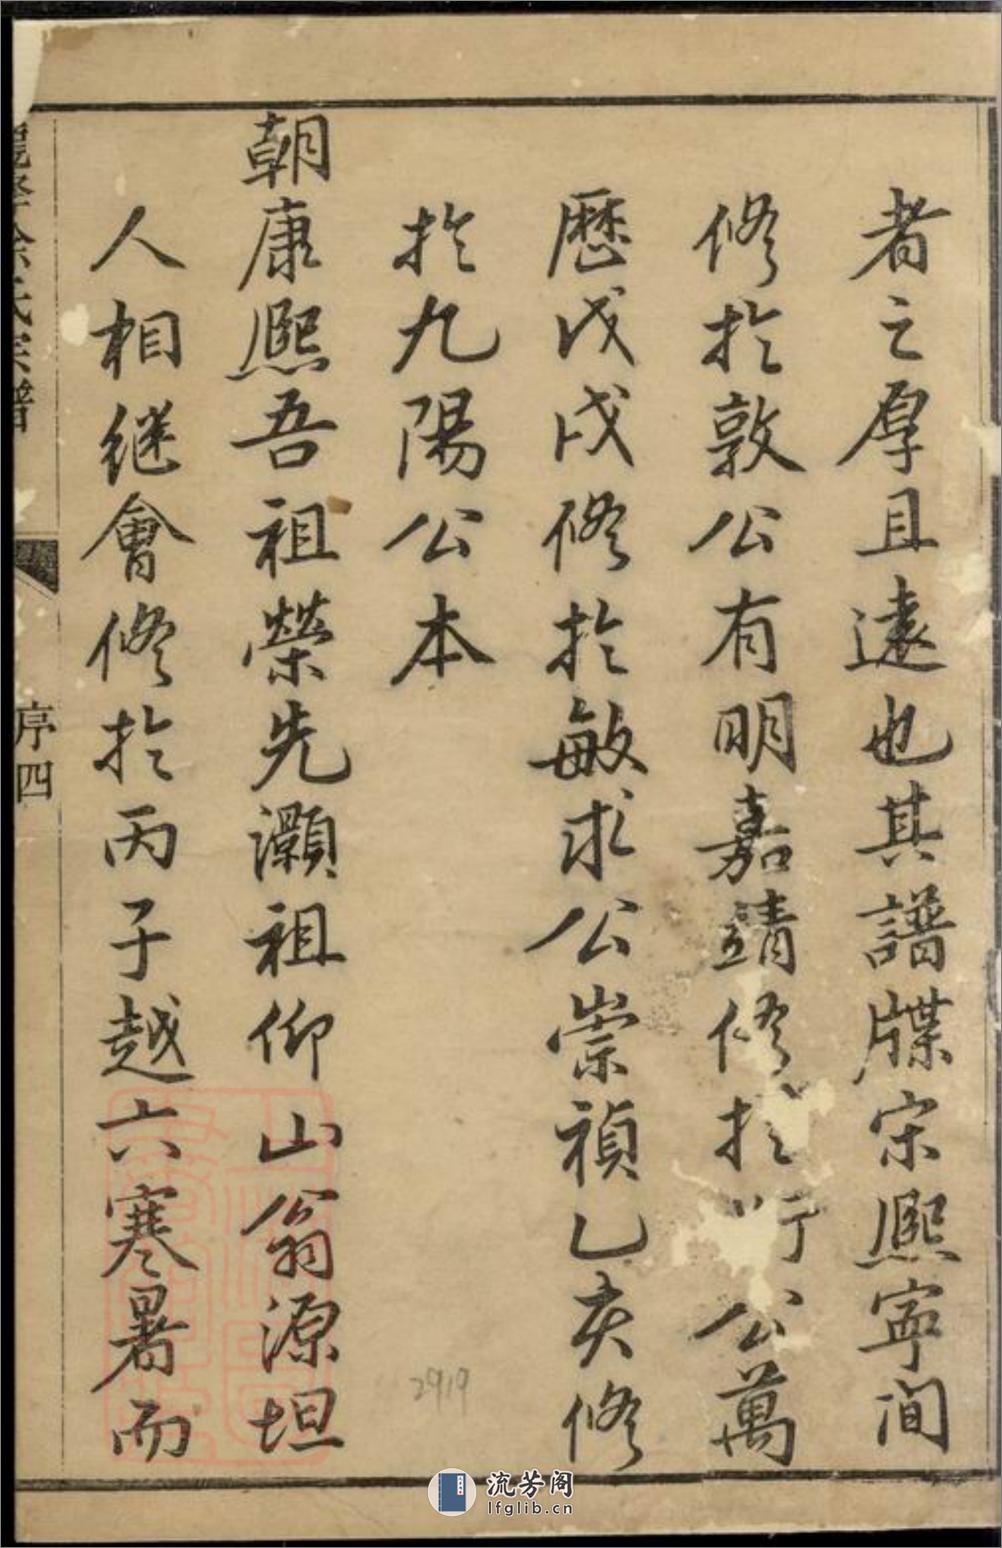 者之厚且遠也其譜牒宋熙寧間
修於敦公有明嘉靖修於公萬
歷戊戌修於敏求公崇禎乙亥修
於九陽公本
朝康熙吾祖榮先灝祖仰山翁源坦
人相继會修於丙子越六寒暑而
徐氏宗譜
序四
2919
流芳阁
lfglib.cn